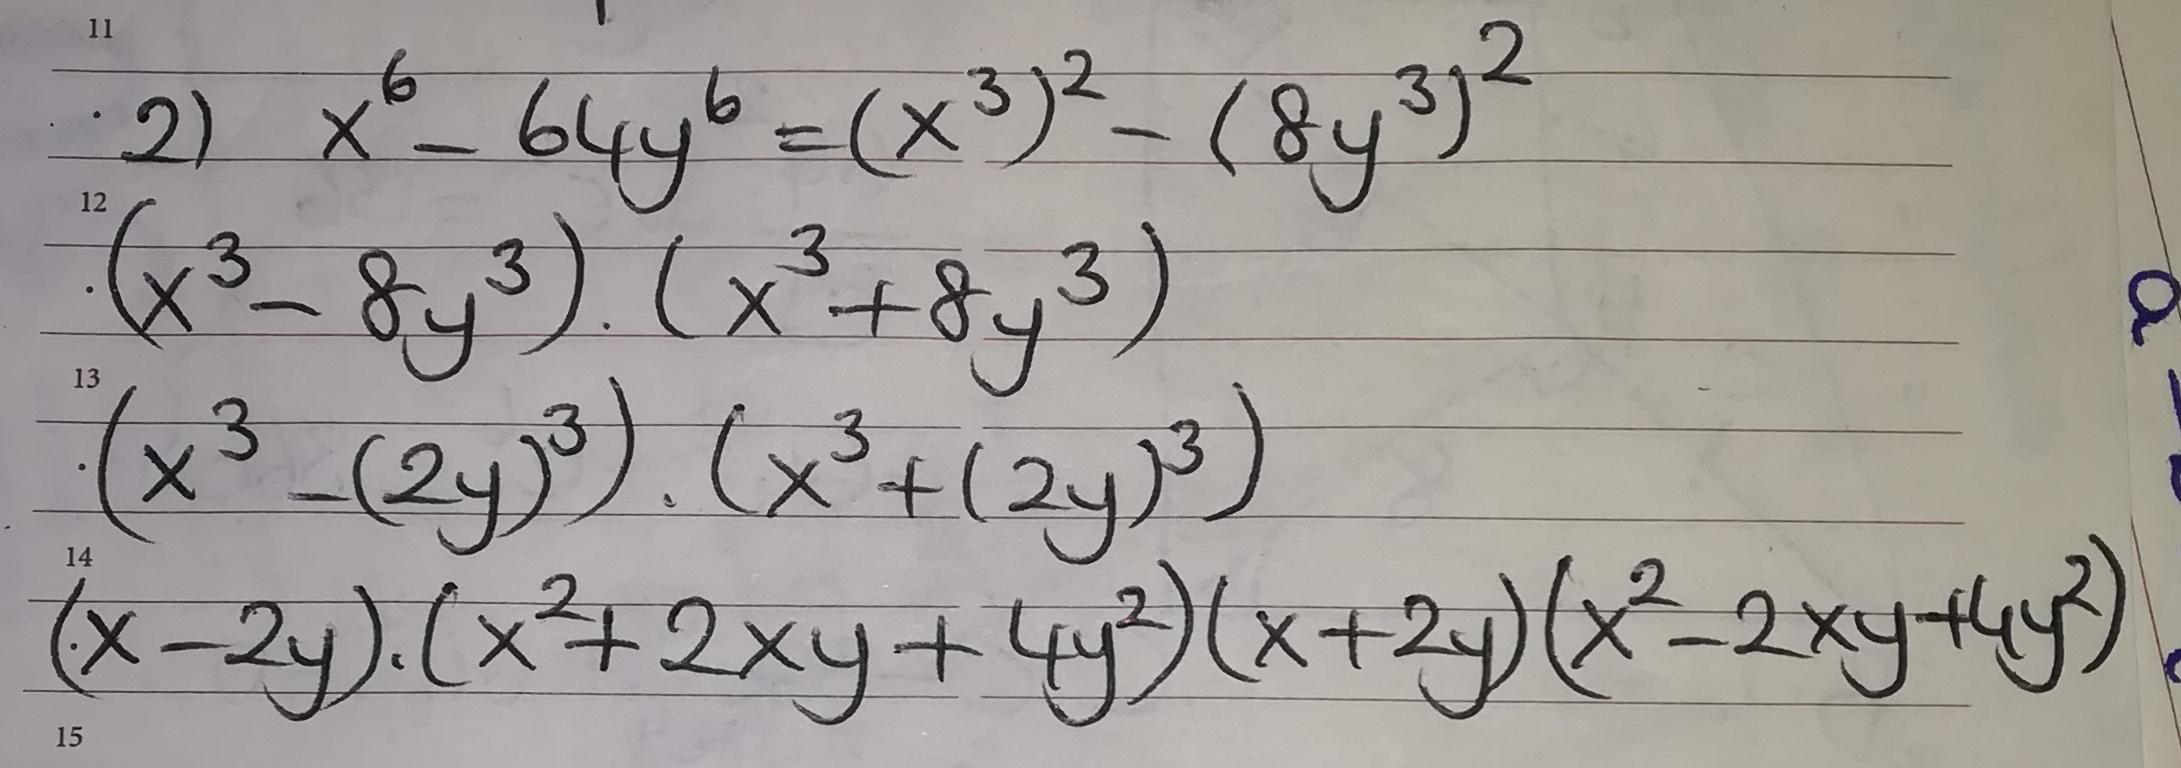 11
2) x⁶ - 64y⁶ = (x³)² - (8y³)²
12
(x³ - 8y³) . (x³ + 8y³)
13
(x³ - (2y)³) . (x³ + (2y)³)
14
(x - 2y) . (x² + 2xy + 4y²)(x + 2y)(x² - 2xy + 4y²)
15